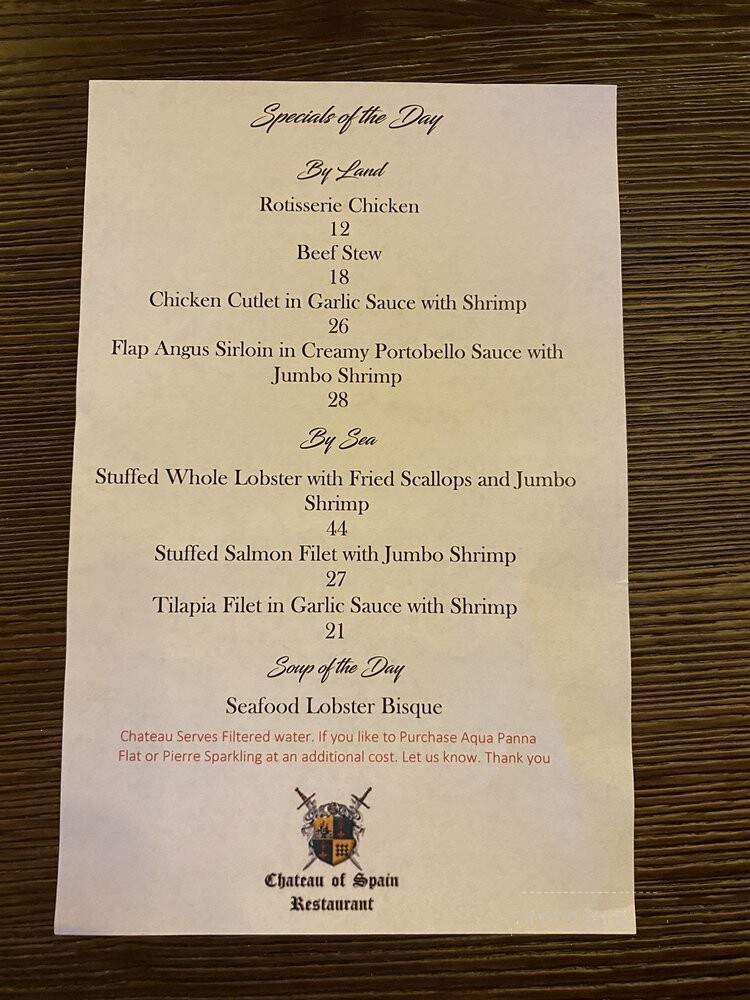 Specials of the Day
By Land
Rotisserie Chicken
12
Beef Stew
18
Chicken Cutlet in Garlic Sauce with Shrimp
26
Flap Angus Sirloin in Creamy Portobello Sauce with
Jumbo Shrimp
28
By Sea
Stuffed Whole Lobster with Fried Scallops and Jumbo
Shrimp
44
Stuffed Salmon Filet with Jumbo Shrimp
27
Tilapia Filet in Garlic Sauce with Shrimp
21
Soup of the Day
Seafood Lobster Bisque
Chateau Serves Filtered water. If you like to Purchase Aqua Panna
Flat or Pierre Sparkling at an additional cost. Let us know. Thank you
Chateau of Spain
Restaurant